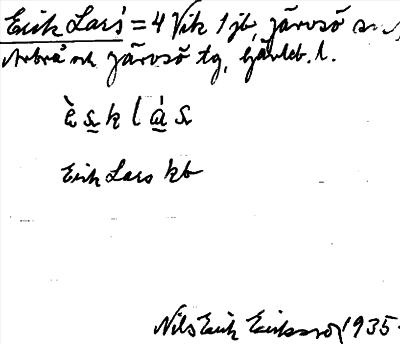 Erik Lars' = 4 Vik 1 jb, Järvsö sn,
Arbrå och Järvsö tg, Gävleb. l.
è s k l á s
Erik Lars kb
Nils Erik Eriksson 1935